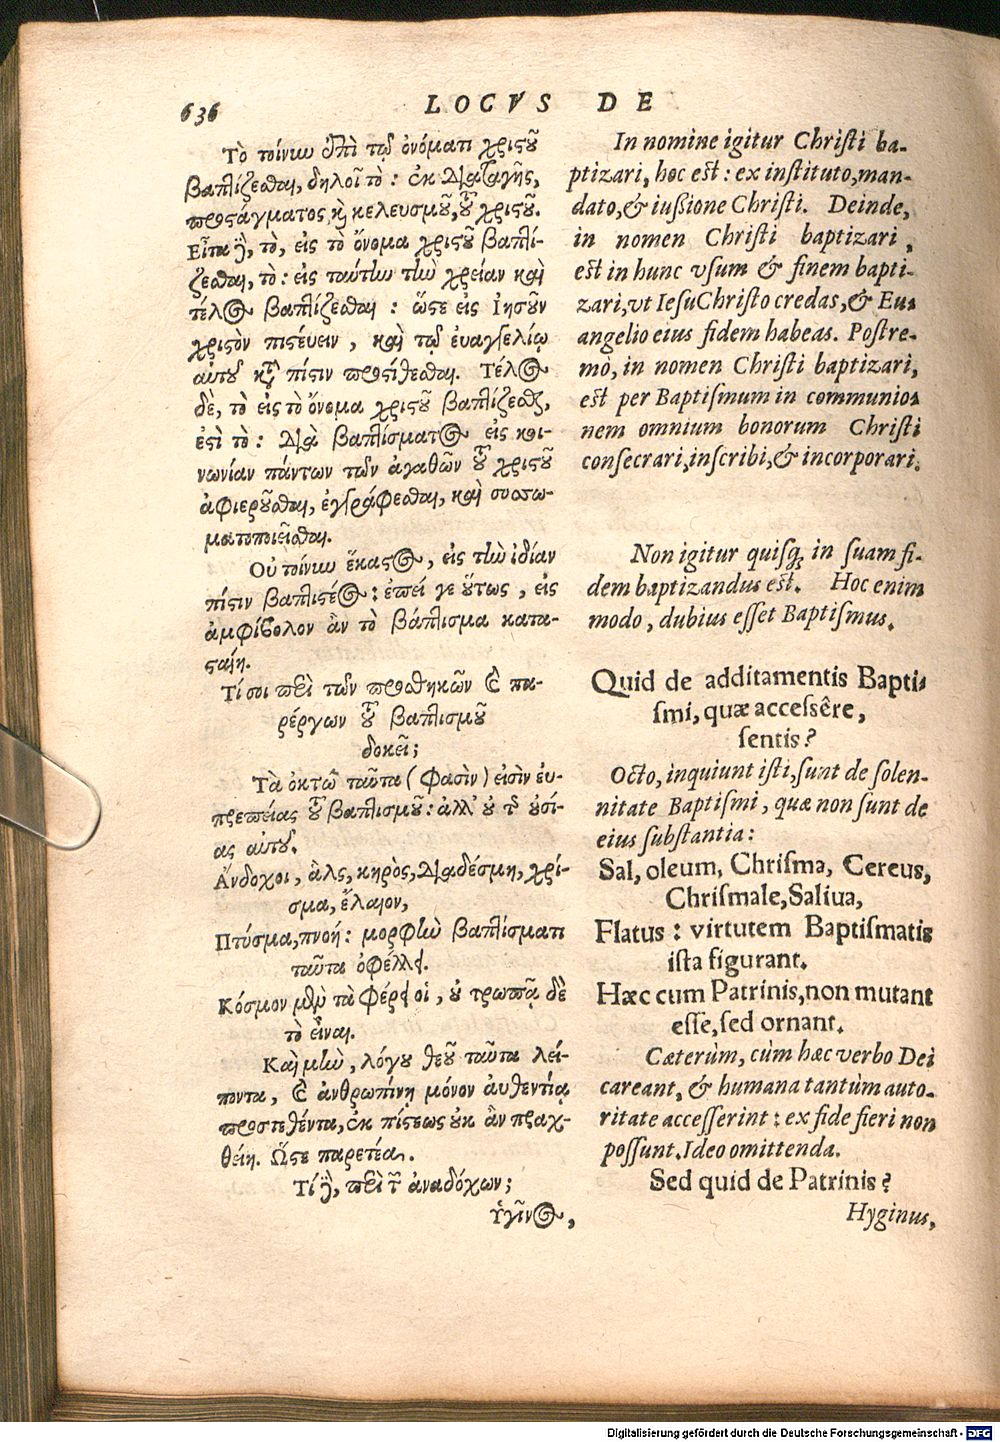 636
LOCVS DE
Τὸ τοίνυν ἐπὶ τῷ ὀνόματι χριστοῦ
βαπτίζεσθαι, δηλοῖ τὸ: ἐκ διαταγῆς,
προστάγματος, καὶ κελευσμοῦ, τοῦ χριστοῦ.
Εἶτα δὲ, τὸ, εἰς τὸ ὄνομα χριστοῦ βαπτί-
ζεσθαι, τὸ: εἰς ταύτην τὴν χρείαν καὶ
τέλος βαπτίζεσθαι: ὥστε εἰς Ἰησοῦν
χριστὸν πιστεύειν, καὶ τῷ ἐυαγγελίῳ
αὐτοῦ πίστιν προστίθεσθαι. Τέλος
δὲ, τὸ εἰς τὸ ὄνομα χριστοῦ βαπτίζεσθαι,
ἐστὶ τὸ: διὰ βαπτίσματος εἰς κοι-
νωνίαν πάντων τῶν ἀγαθῶν τοῦ χριστοῦ
ἀφιεροῦσθαι, ἐγγράφεσθαι, καὶ συσσω-
ματοποιεῖσθαι.
Οὐ τοίνυν ἕκαστος, εἰς τὴν ἰδίαν
πίστιν βαπτιστέος: ἐπεί γε οὕτως, εἰς
ἀμφίβολον ἂν τὸ βάπτισμα κατα-
σταίη.
Τί σοι περὶ τῶν προσθηκῶν καὶ πα-
ρέργων τοῦ βαπτισμοῦ
δοκεῖ;
Τὰ ὀκτὼ ταῦτα (φασὶν) εἰσὶν ἐυ-
πρεπείας τοῦ βαπτισμοῦ: ἀλλ' οὐ τῆς οὐσί-
ας αὐτοῦ.
Ἀνδοχοι, ἃλς, κηρὸς, διαδέσμη, χρί-
σμα, ἔλαιον,
Πτύσμα, πνοή: μορφὴν βαπτίσματι
ταῦτα ὀφέλλει.
Κόσμον μὲν τὰ φέρει οἱ, οὐ τρωπᾷ δὲ
τὸ εἶναι.
Καὶ μὴν, λόγου θεοῦ ταῦτα λεί-
ποντα, καὶ ἀνθρωπίνῃ μόνον ἀυθεντίᾳ
προστεθέντα, ἐκ πίστεως οὐκ ἂν πραχ-
θείη. Ὥστε παρετέα.
Τί δὲ, περὶ τῶν ἀναδόχων;
Ὑγῖνος,
In nomine igitur Christi ba-
ptizari, hoc est: ex instituto, man-
dato, & iussione Christi. Deinde,
in nomen Christi baptizari,
est in hunc vsum & finem bapti-
zari, vt Iesu Christo credas, & Eu-
angelio eius fidem habeas. Postre-
mò, in nomen Christi baptizari,
est per Baptismum in communio-
nem omnium bonorum Christi
consecrari, inscribi, & incorporari.
Non igitur quisq; in suam fi-
dem baptizandus est. Hoc enim
modo, dubius esset Baptismus.
Quid de additamentis Bapti-
smi, quæ accessêre,
sentis?
Octo, inquiunt isti, sunt de solen-
nitate Baptismi, quæ non sunt de
eius substantia:
Sal, oleum, Chrisma, Cereus,
Chrismale, Saliua,
Flatus: virtutem Baptismatis
ista figurant.
Hæc cum Patrinis, non mutant
esse, sed ornant.
Cæterùm, cùm hæc verbo Dei
careant, & humana tantùm auto-
ritate accesserint: ex fide fieri non
possunt. Ideo omittenda.
Sed quid de Patrinis?
Hyginus,
Digitalisierung gefördert durch die Deutsche Forschungsgemeinschaft - DFG